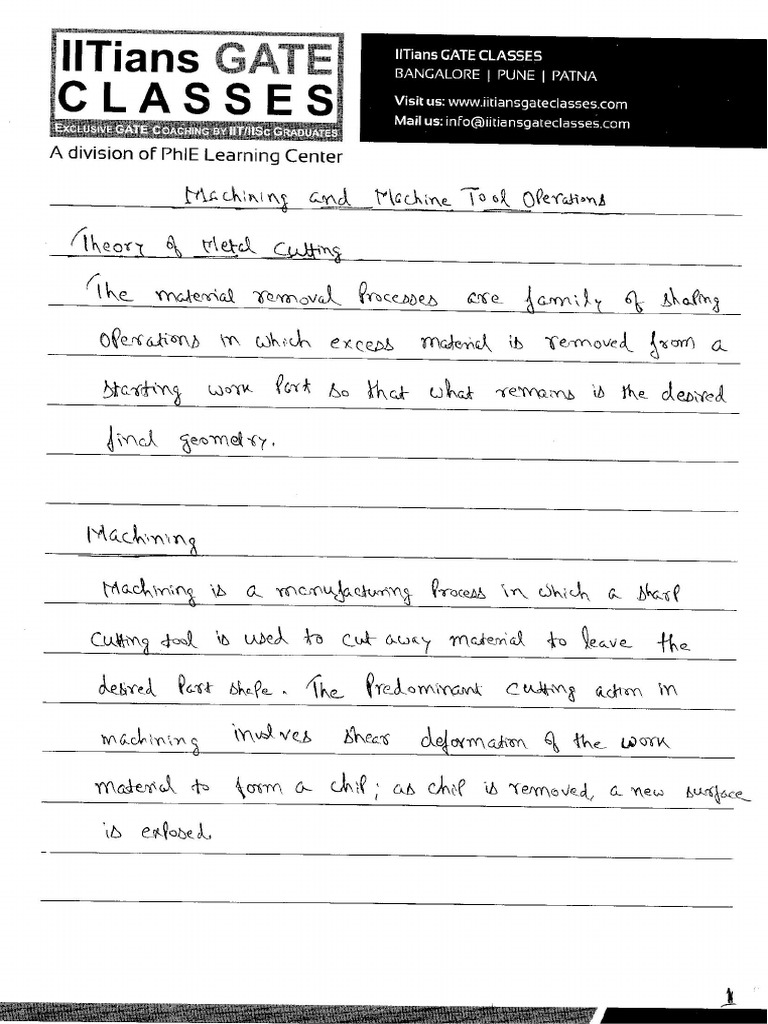 IITians GATE
CLASSES
EXCLUSIVE GATE COACHING BY IIT/IISC GRADUATES
A division of PhIE Learning Center
IITians GATE CLASSES
BANGALORE | PUNE | PATNA
Visit us: www.iitiansgateclasses.com
Mail us: info@iitiansgateclasses.com
Machining and Machine Tool Operations
Theory of Metal Cutting
The material removal Processes are family of shaping
operations in which excess material is removed from a
starting work part so that what remains is the desired
final geometry.
Machining
Machining is a manufacturing process in which a sharp
cutting tool is used to cut away material to leave the
desired part shape. The Predominant cutting action in
machining involves shear deformation of the work
material to form a chip; as chip is removed, a new surface
is exposed.
1